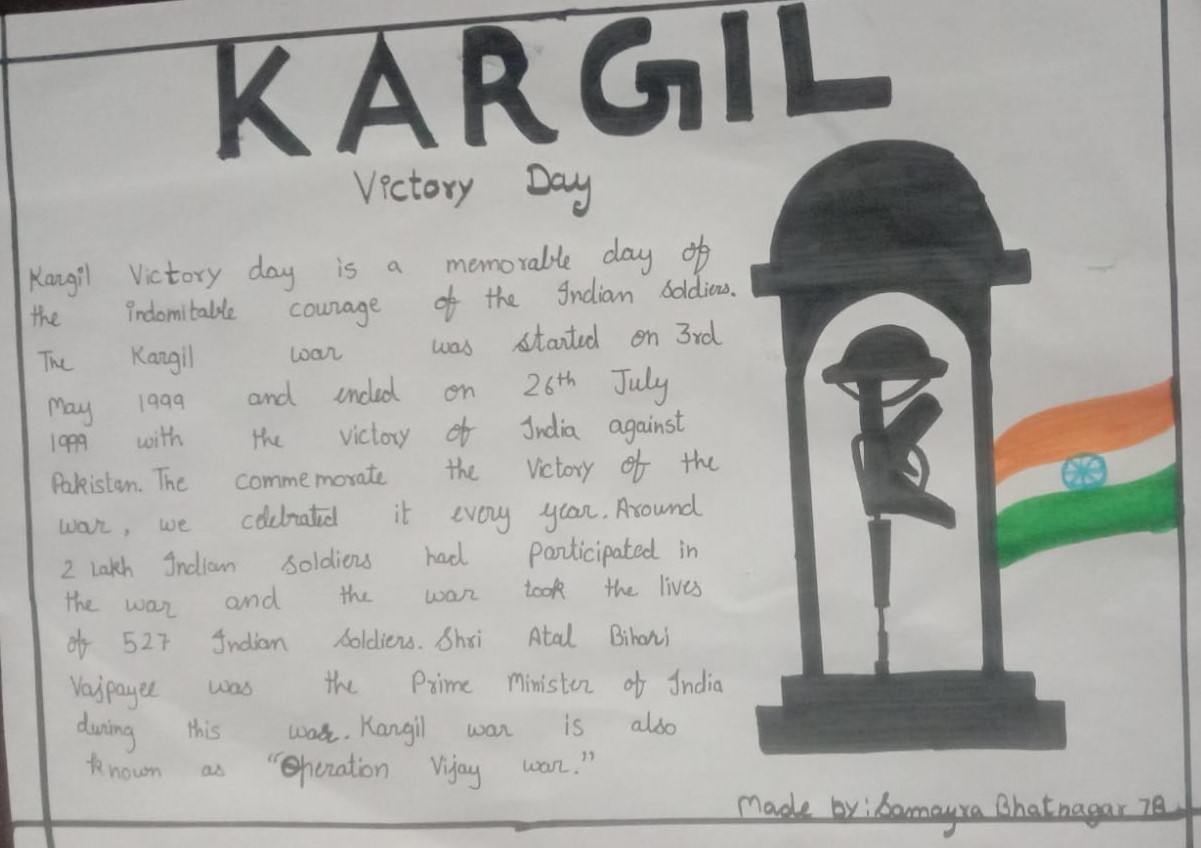 KARGIL
Victory Day
Kargil Victory day is a memorable day of
the indomitable courage of the Indian Soldiers.
The Kargil war was started on 3rd
May 1999 and ended on 26th July
1999 with the victory of India against
Pakistan. The commemorate the Victory of the
war, we celebrated it every year. Around
2 Lakh Indian soldiers had participated in
the war and the war took the lives
of 527 Indian Soldiers. Shri Atal Bihari
Vajpayee was the Prime Minister of India
during this war. Kargil war is also
known as "Operation Vijay war."
Made by: Samayra Bhatnagar 7B